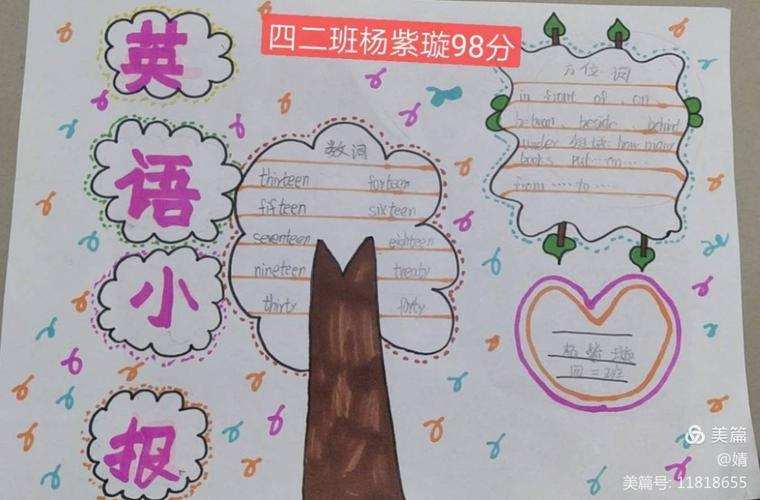 四二班杨紫璇98分
英
语
小
报
数词
thirteen forteen
fifteen sixteen
seventeen eighteen
nineteen
thirty forty
方位词
in front of on
between beside behind
under 短语: how many
books put on ……
from …… to ……
杨紫璇
四二班
美篇
@婧
美篇号: 11818655